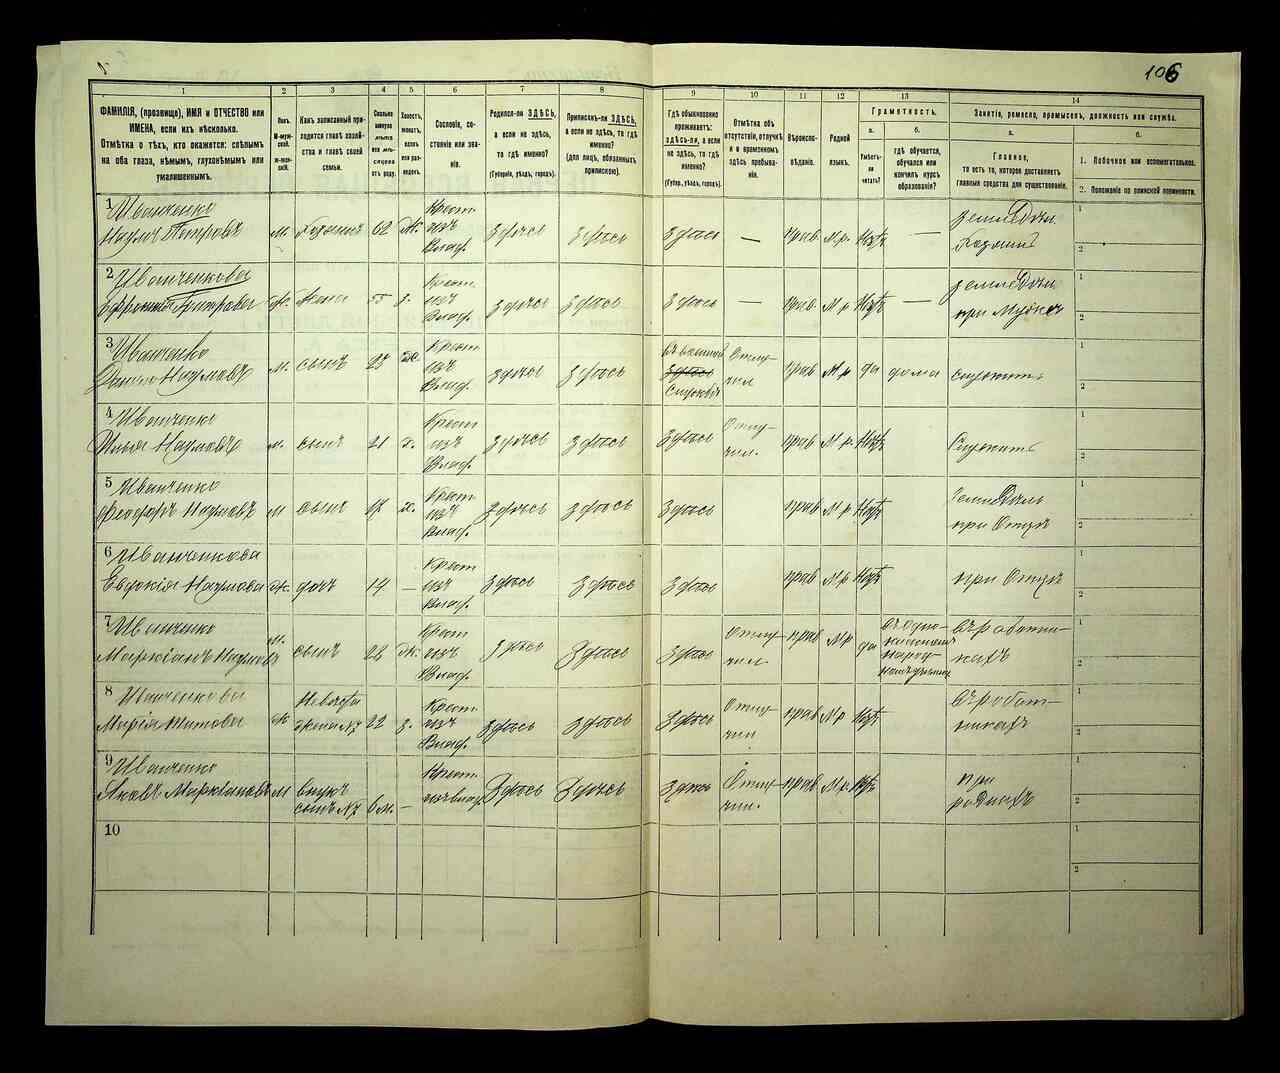 106
1
2
3
4
5
6
7
8
9
10
11
12
13
14
ФАМИЛІЯ, (прозвище), ИМЯ и ОТЧЕСТВО или
ИМЕНА, если ихъ нѣсколько.
Отмѣтка о тѣхъ, кто окажется: слѣпымъ
на оба глаза, нѣмымъ, глухонѣмымъ или
умалишеннымъ.
Полъ.
М-муж-
ской.
Ж-жен-
скій.
Какъ записанный при-
ходится главѣ хозяй-
ства и главѣ своей
семьи.
Сколько
минуло
лѣтъ
или мѣ-
сяцевъ
отъ роду.
Холостъ,
женатъ,
вдовъ
или раз-
веденъ.
Сословіе, со-
стояніе или зва-
ніе.
Родился-ли ЗДѢСЬ,
а если не здѣсь,
то гдѣ именно?
(Губернія, уѣздъ, городъ).
Приписанъ-ли ЗДѢСЬ,
а если не здѣсь, то гдѣ
именно?
(для лицъ, обязанныхъ
припискою).
Гдѣ обыкновенно
проживаетъ:
здѣсь-ли, а если
не здѣсь, то гдѣ
именно?
(Губер., уѣздъ, городъ).
Отмѣтка объ
отсутствіи, отлучкѣ
и о временномъ
здѣсь пребыва-
ніи.
Вѣроиспо-
вѣданіе.
Родной
языкъ.
Грамотность.
а.
Умѣетъ-
ли
читать?
б.
гдѣ обучается,
обучался или
кончилъ курсъ
образованія?
Занятіе, ремесло, промыселъ, должность или служба.
а.
Главное,
то есть то, которое доставляетъ
главныя средства для существованія.
б.
1. Побочное или вспомогательное.
2. Положеніе по воинской повинности.
1
Иванченко
Наумъ Петровъ
м
Хозяинъ
62
ж.
Крест
изъ
Влад.
Здѣсь
Здѣсь
Здѣсь
—
прав
М.р.
Нѣтъ
—
Земледѣл.
Хозяинъ
1
2
2
Иванченкова
Петрова
ж.
Жена
55
з.
Крест.
изъ
Влад.
Здѣсь
Здѣсь
Здѣсь
—
прав.
М р
Нѣтъ
—
Земледѣл
при Мужѣ
1
2
3
Иванченко
Данило Наумовъ
м.
сынъ
ж
Крест
изъ
Влад.
Здѣсь
Здѣсь
въ военной
здѣсь
службѣ
Отлу-
чил
прав
М р
да
дома
служитъ
1
2
4
Иванченко
Илья Наумовъ
м.
сынъ
21
х.
Крест
изъ
Влад.
Здѣсь
Здѣсь
Здѣсь
Отлу-
чил.
прав
М р.
Нѣтъ
Служитъ
1
2
5
Иванченко
Феодоръ Наумовъ
м
сынъ
17
х.
Крест
изъ
Влад.
Здѣсь
Здѣсь
Здѣсь
прав
М р
Нѣтъ
Земледѣль
при Отцѣ
1
2
6
Иванченкова
Евдокія Наумова
ж.
дочь
14
—
Крест
изъ
Влад.
Здѣсь
Здѣсь
Здѣсь
прав
М р
Нѣтъ
при Отцѣ
1
2
7
Иванченко
Маркіанъ Наумовъ
м.
сынъ
ж.
Крест
изъ
Влад.
Здѣсь
Здѣсь
Здѣсь
Отлу-
чил.
прав
М р
да
народ-
въ работни-
кахъ
1
2
8
Иванченкова
Марія Титова
ж
Невѣстка
жена №7
22
з.
Крест
изъ
Влад.
Здѣсь
Здѣсь
Здѣсь
Отлу-
чил
прав
М р
Нѣтъ
въ работ-
никахъ
1
2
9
Иванченко
Яковъ Маркіановъ
м
внукъ
сынъ №7
6 м.
—
Крест
изъ Влад
Здѣсь
Здѣсь
Здѣсь
Отлу-
чил.
прав
М р.
Нѣтъ
при
родныхъ
1
2
10
1
2